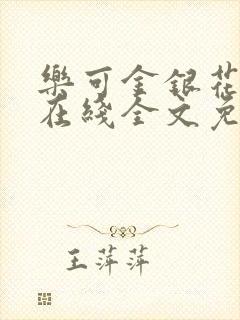 樂可金銀花
在綫全文免
王萍萍